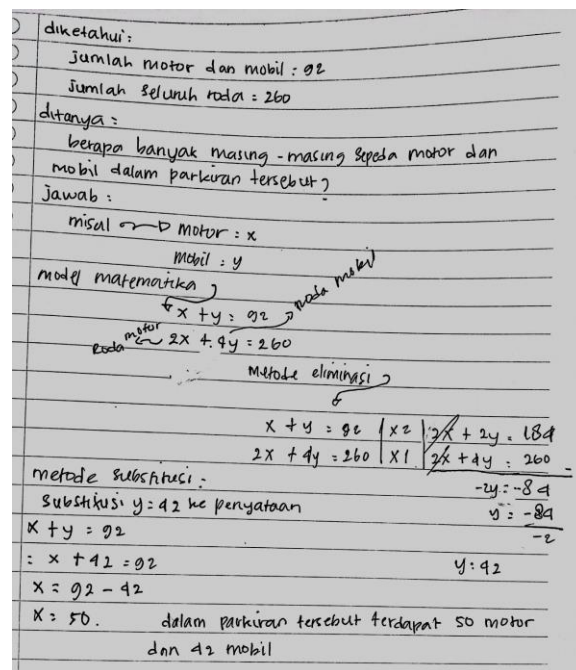 diketahui :
jumlah motor dan mobil : 92
jumlah seluruh roda = 260
ditanya :
berapa banyak masing-masing sepeda motor dan
mobil dalam parkiran tersebut ?
jawab :
misal → motor : x
mobil : y
model matematika
x + y = 92 roda mobil
Roda motor 2x + 4y = 260
metode eliminasi
x + y = 92 | x2 | 2x + 2y = 184
2x + 4y = 260 | x1 | 2x + 4y = 260 -
-2y = -84
y = -84
-2
y : 42
metode substitusi :
substitusi y = 42 ke penyataan
x + y = 92
: x + 42 = 92
x = 92 - 42
x = 50. dalam parkiran tersebut terdapat 50 motor
dan 42 mobil